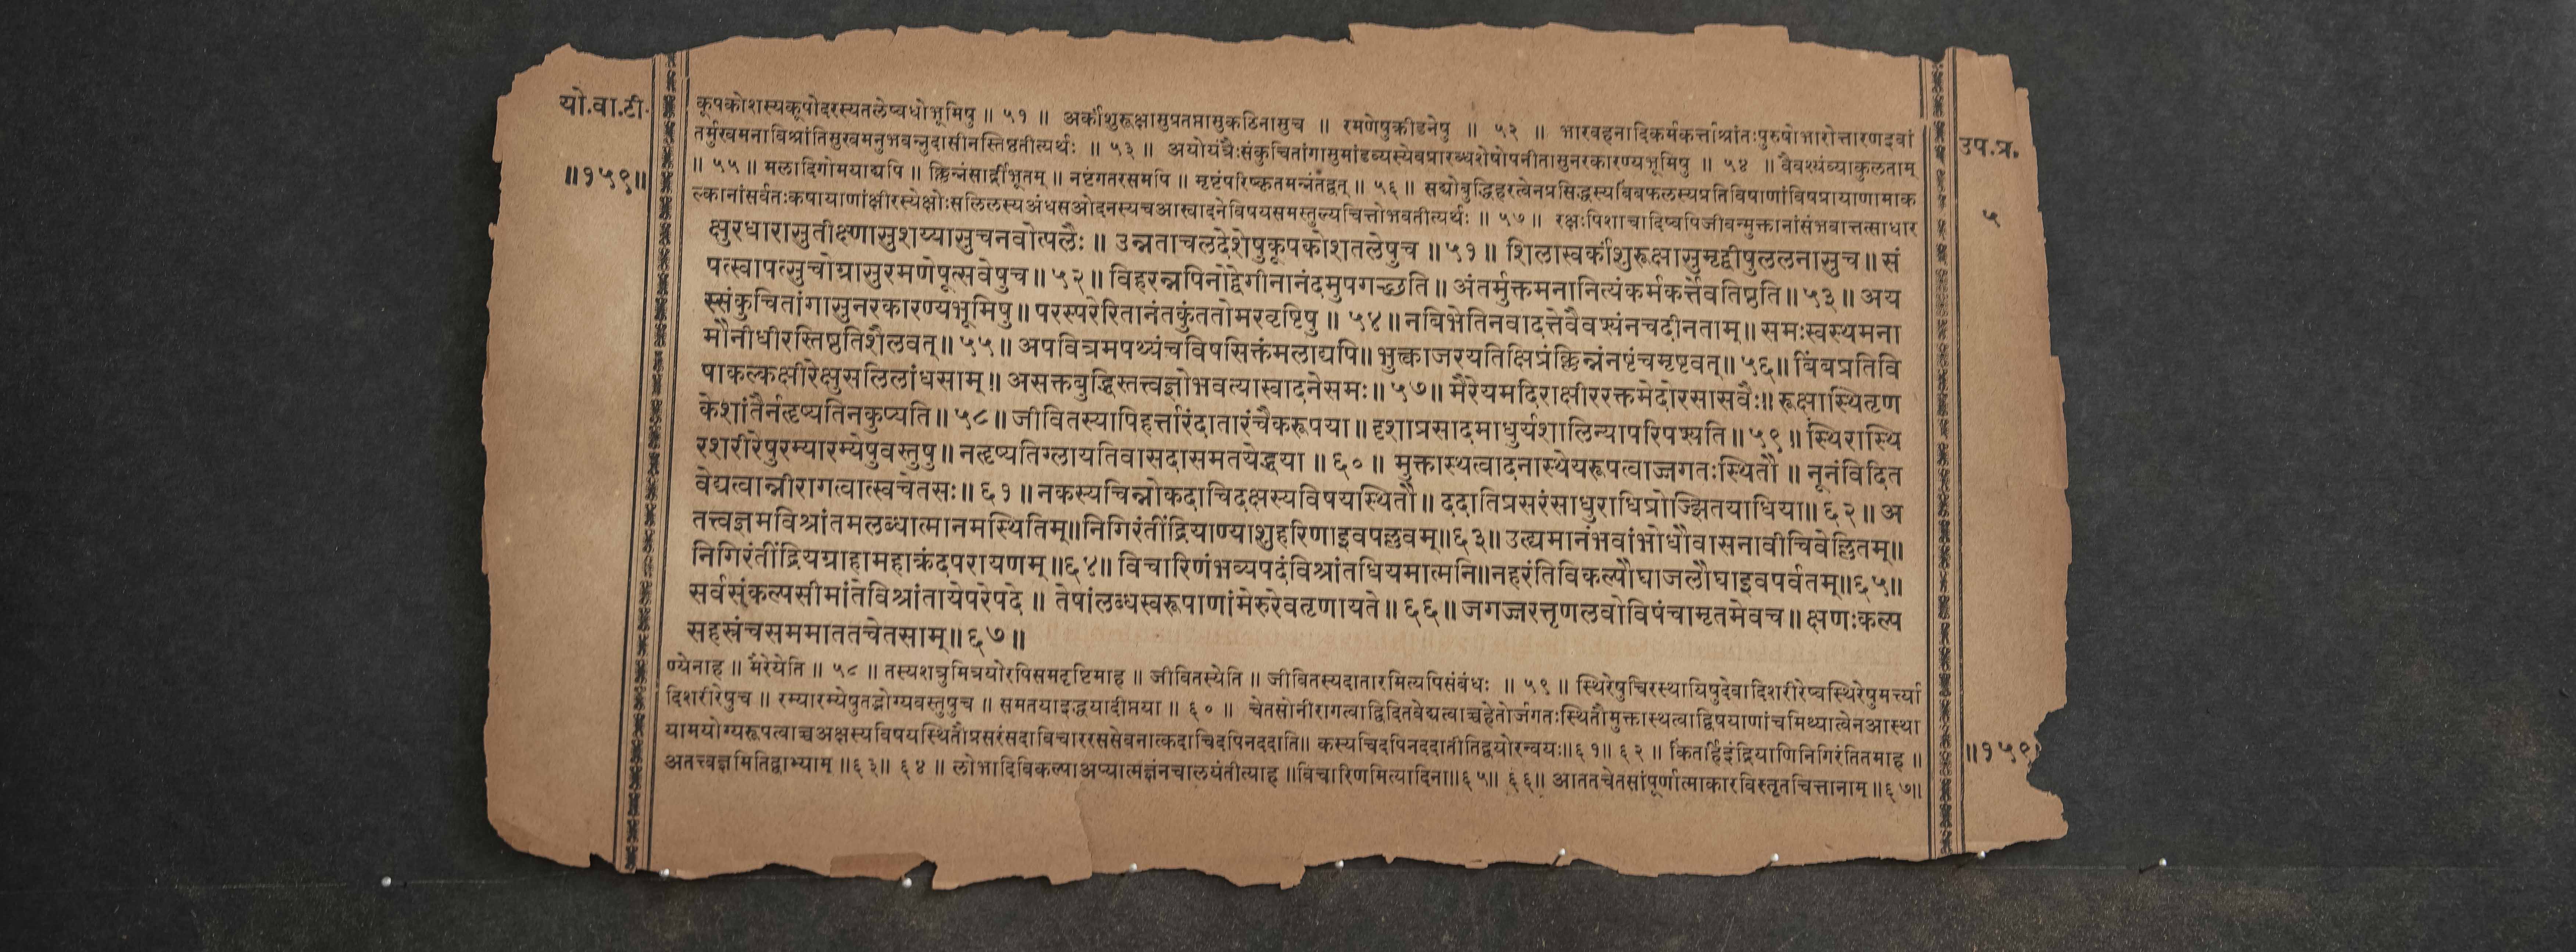 यो.वा.टी.
॥१५९॥
कूपकोशस्यकूपोदरस्यतलेष्वधोभूमिषु ॥ ५१ ॥ अर्कांशुरूक्षासुप्रतप्तासुकठिनासुच ॥ रमणेषुक्रीडनेषु ॥ ५२ ॥ भारवहनादिकर्मकर्त्ताश्रांतःपुरुषोभारोत्तारणइवां
तर्मुखमनाविश्रांतिसुखमनुभवन्नुदासीनस्तिष्ठतीत्यर्थः ॥ ५३ ॥ अयोयंत्रैःसंकुचितांगासुमांडव्यस्येवप्रारब्धशेषोपनीतासुनरकारण्यभूमिषु ॥ ५४ ॥ वैवश्यंव्याकुलताम्
॥ ५५ ॥ मलादिगोमयाद्यपि ॥ क्लिन्नंसार्द्रीभूतम् ॥ नष्टंगतरसमपि ॥ मृष्टंपरिष्कृतमन्नंतद्वत् ॥ ५६ ॥ सद्योबुद्धिहरत्वेनप्रसिद्धस्यबिंबफलस्यप्रतिविषाणांविषप्रायाणामाक
ल्कानांसर्वतःकषायाणांक्षीरस्येक्षोःसलिलस्यअंधसओदनस्यचआस्वादनेविषयसमस्तुल्यचित्तोभवतीत्यर्थः ॥ ५७ ॥ रक्षःपिशाचादिष्वपिजीवन्मुक्तानांसंभवात्तत्साधार
क्षुरधारासुतीक्ष्णासुशय्यासुचनवोत्पलैः ॥ उन्नताचलदेशेषुकूपकोशतलेषुच ॥ ५१ ॥ शिलास्वर्कांशुरूक्षासुमृद्वीषुललनासुच ॥ सं
पत्स्वापत्सुचोग्रासुरमणेषूत्सवेषुच ॥ ५२ ॥ विहरन्नपिनोद्वेगीनानंदमुपगच्छति ॥ अंतर्मुक्तमनानित्यंकर्मकर्त्तेवतिष्ठति ॥ ५३ ॥ अय
स्संकुचितांगासुनरकारण्यभूमिषु ॥ परस्परेरितानंतकुंततोमरवृष्टिषु ॥ ५४ ॥ नबिभेतिनवादत्तेवैवश्यंनचदीनताम् ॥ समःस्वस्थमना
मौनीधीरस्तिष्ठतिशैलवत् ॥ ५५ ॥ अपवित्रमपथ्यंचविषसिक्तंमलाद्यपि ॥ भुक्त्वाजरयतिक्षिप्रंक्लिन्नंनष्टंचमृष्टवत् ॥ ५६ ॥ बिंबप्रतिवि
षाकल्कक्षीरेक्षुसलिलांधसाम् ॥ असक्तबुद्धिस्तत्त्वज्ञोभवत्यास्वादनेसमः ॥ ५७ ॥ मैरेयमदिराक्षीररक्तमेदोरसासवैः ॥ रूक्षास्थितृण
केशांतैर्नतृप्यतिनकुप्यति ॥ ५८ ॥ जीवितस्यापिहर्त्तारंदातारंचैकरूपया ॥ दृशाप्रसादमाधुर्यशालिन्यापरिपश्यति ॥ ५९ ॥ स्थिरास्थि
रशरीरेषुरम्यारम्येषुवस्तुषु ॥ नतृप्यतिग्लायतिवासदासमतयेद्धया ॥ ६० ॥ मुक्तास्थत्वादनास्थेयरूपत्वाज्जगतःस्थितौ ॥ नूनंविदित
वेद्यत्वान्नीरागत्वात्स्वचेतसः ॥ ६१ ॥ नकस्यचिन्नोकदाचिदक्षस्यविषयस्थितौ ॥ ददातिप्रसरंसाधुराधिप्रोज्झितयाधिया ॥ ६२ ॥ अ
तत्त्वज्ञमविश्रांतमलब्धात्मानमस्थितिम् ॥ निगिरंतींद्रियाण्याशुहरिणाइवपल्लवम् ॥६३॥ उह्यमानंभवांभोधौवासनावीचिवेल्लितम् ॥
निगिरंतींद्रियग्राहामहाक्रंदपरायणम् ॥६४॥ विचारिणंभव्यपदंविश्रांतधियमात्मनि ॥ नहरंतिविकल्पौघाजलौघाइवपर्वतम् ॥६५॥
सर्वसंकल्पसीमांतेविश्रांतायेपरेपदे ॥ तेषांलब्धस्वरूपाणांमेरुरेवतृणायते ॥ ६६ ॥ जगज्जरत्तृणलवोविषंचामृतमेवच ॥ क्षणःकल्प
सहस्रंचसममाततचेतसाम् ॥ ६७ ॥
ण्येनाह ॥ मैरेयेति ॥ ५८ ॥ तस्यशत्रुमित्रयोरपिसमदृष्टिमाह ॥ जीवितस्येति ॥ जीवितस्यदातारमित्यपिसंबंधः ॥ ५९ ॥ स्थिरेषुचिरस्थायिषुदेवादिशरीरेष्वस्थिरेषुमर्त्त्या
दिशरीरेषुच ॥ रम्यारम्येषुतद्भोग्यवस्तुषुच ॥ समतयाइद्धयादीप्तया ॥ ६० ॥ चेतसोनीरागत्वाद्विदितवेद्यत्वाच्चहेतोर्जगतःस्थितौमुक्तास्थत्वाद्विषयाणांचमिथ्यात्वेनआस्था
यामयोग्यरूपत्वाच्चअक्षस्यविषयस्थितौप्रसरंसदाविचाररससेवनात्कदाचिदपिनददाति ॥ कस्यचिदपिनददातीतिद्वयोरन्वयः ॥६१॥ ६२ ॥ किंतर्हिइंद्रियाणिनिगिरंतितमाह ॥
अतत्त्वज्ञमितिद्वाभ्याम् ॥६३॥ ६४ ॥ लोभादिविकल्पाअप्यात्मज्ञंनचालयंतीत्याह ॥विचारिणमित्यादिना॥६५॥ ६६॥ आततचेतसांपूर्णात्माकारविस्तृतचित्तानाम् ॥६७॥
उप.प्र.
५
॥१५९